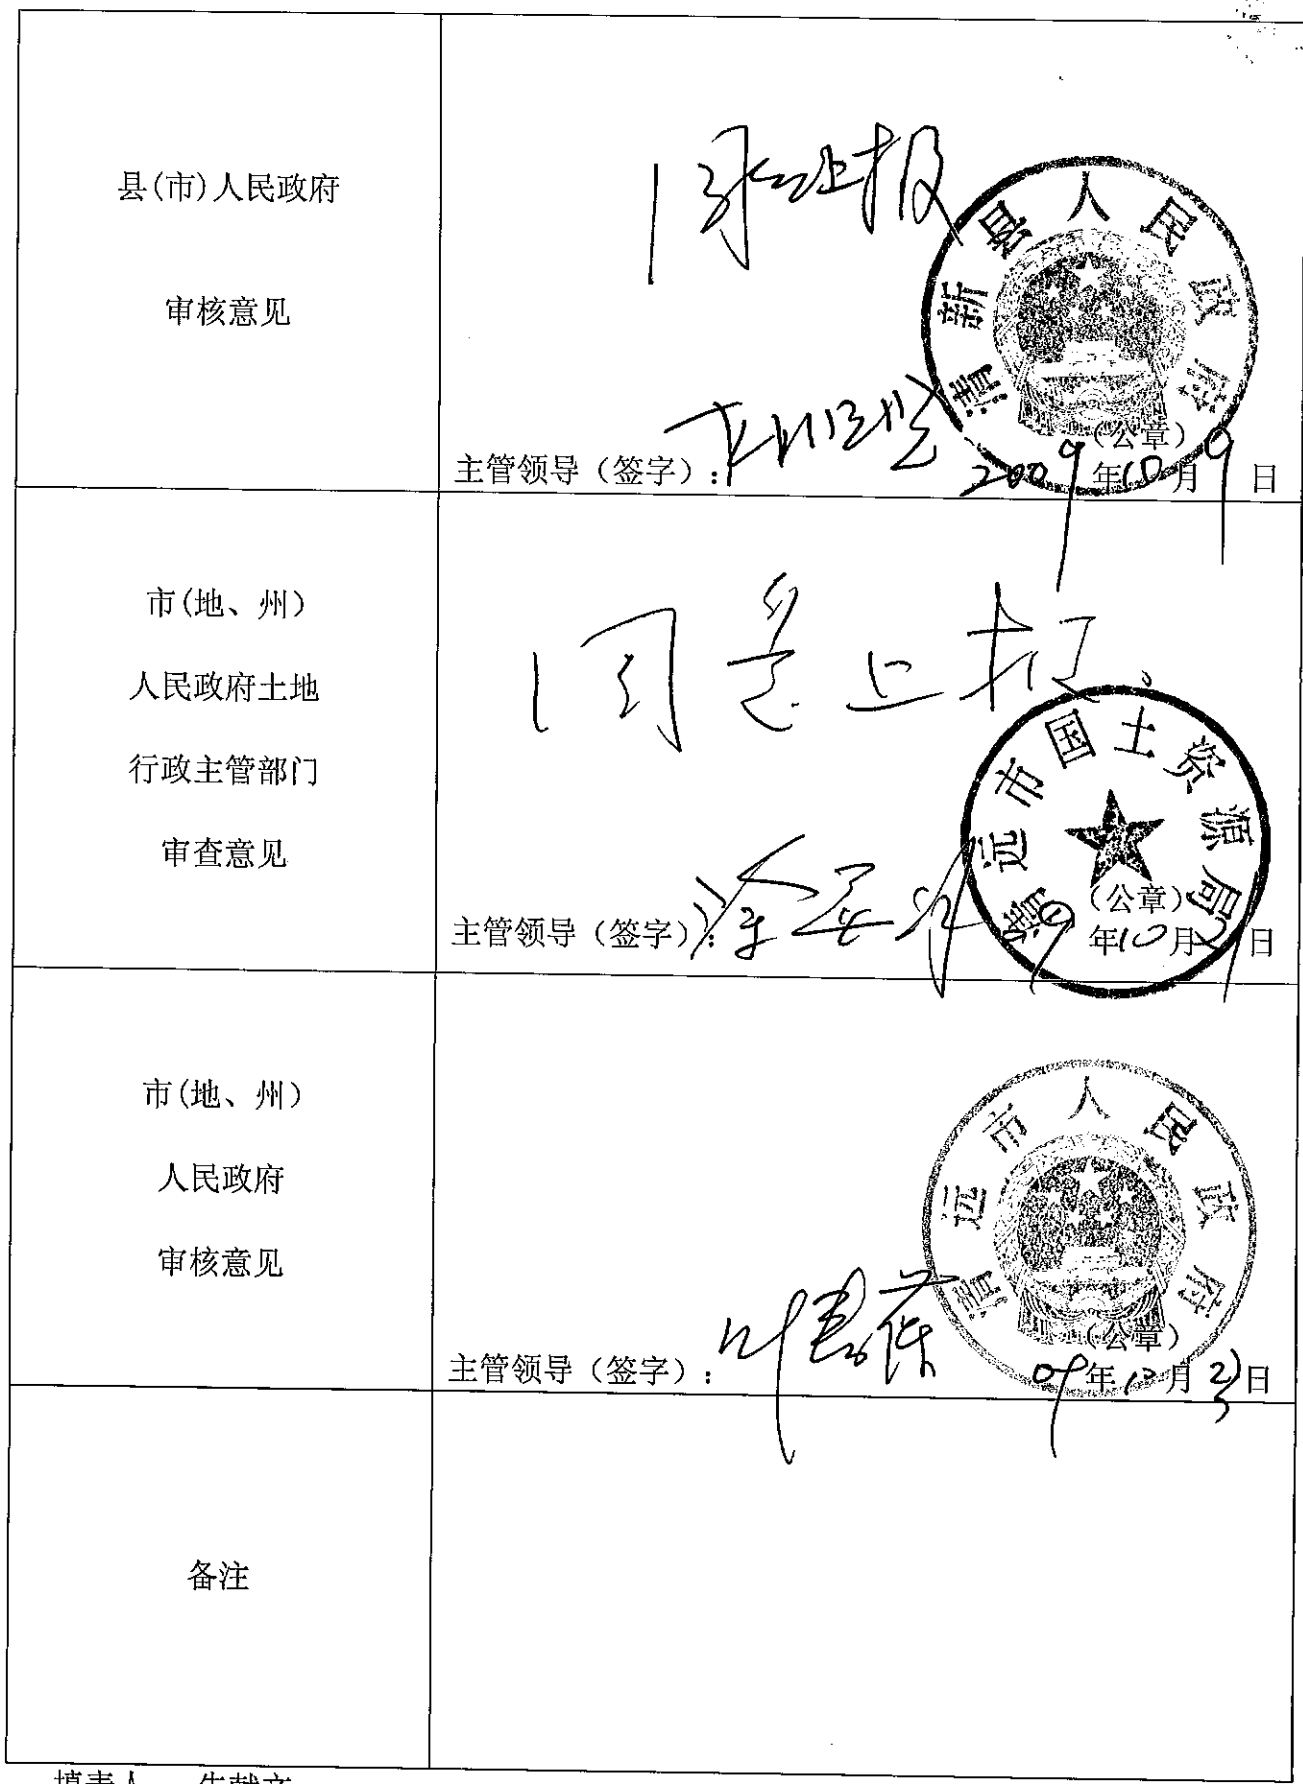 县(市)人民政府
审核意见
同意上报
清新县人民政府
主管领导（签字）：
（公章）
2009年10月9日
市(地、州)
人民政府土地
行政主管部门
审查意见
同意上报。
清远市国土资源局
主管领导（签字）：
（公章）
年10月 日
市(地、州)
人民政府
审核意见
清远市人民政府
主管领导（签字）：
（公章）
09年10月23日
备注
填表人